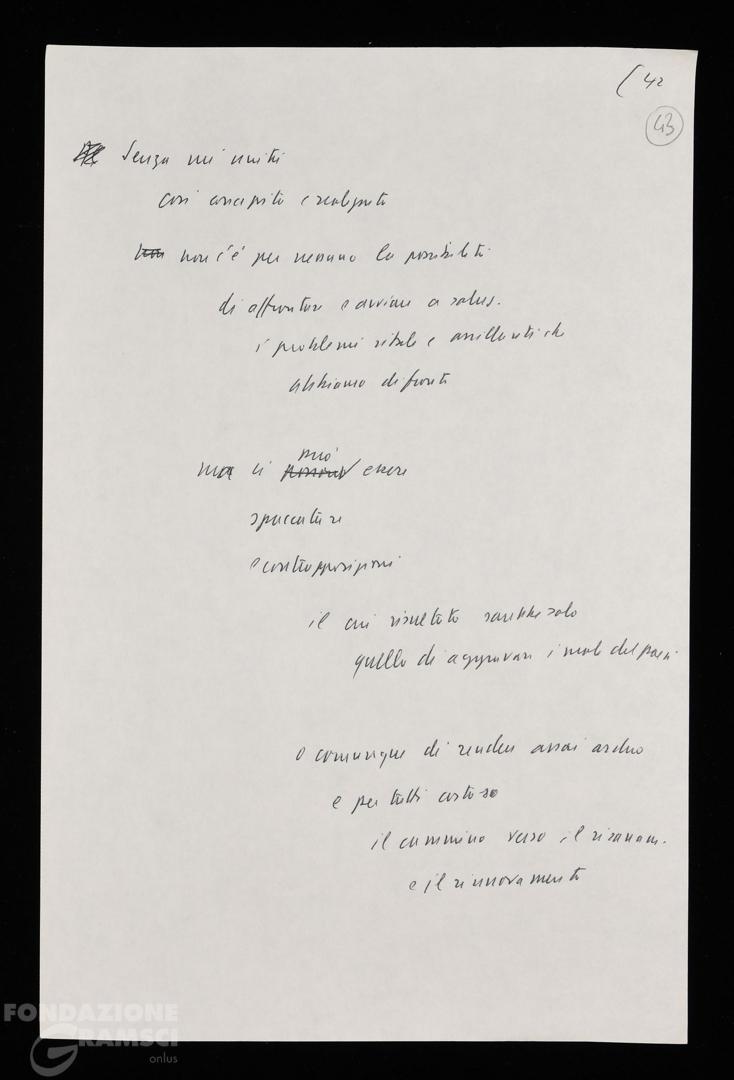 (42
43
Senza un'unità
così concepita e realizzata
non c'è per nessuno la possibilità
di affrontare e avviare a soluz.
i problemi vitali e assillanti che
abbiamo di fronte
ma ci può essere
spaccature
e contrapposizioni
il cui risultato sarebbe solo
quello di aggravare i mali del paese
o comunque di rendere assai arduo
e per tutti costoso
il cammino verso il risanam.
e il rinnovamento
FONDAZIONE
GRAMSCI
onlus